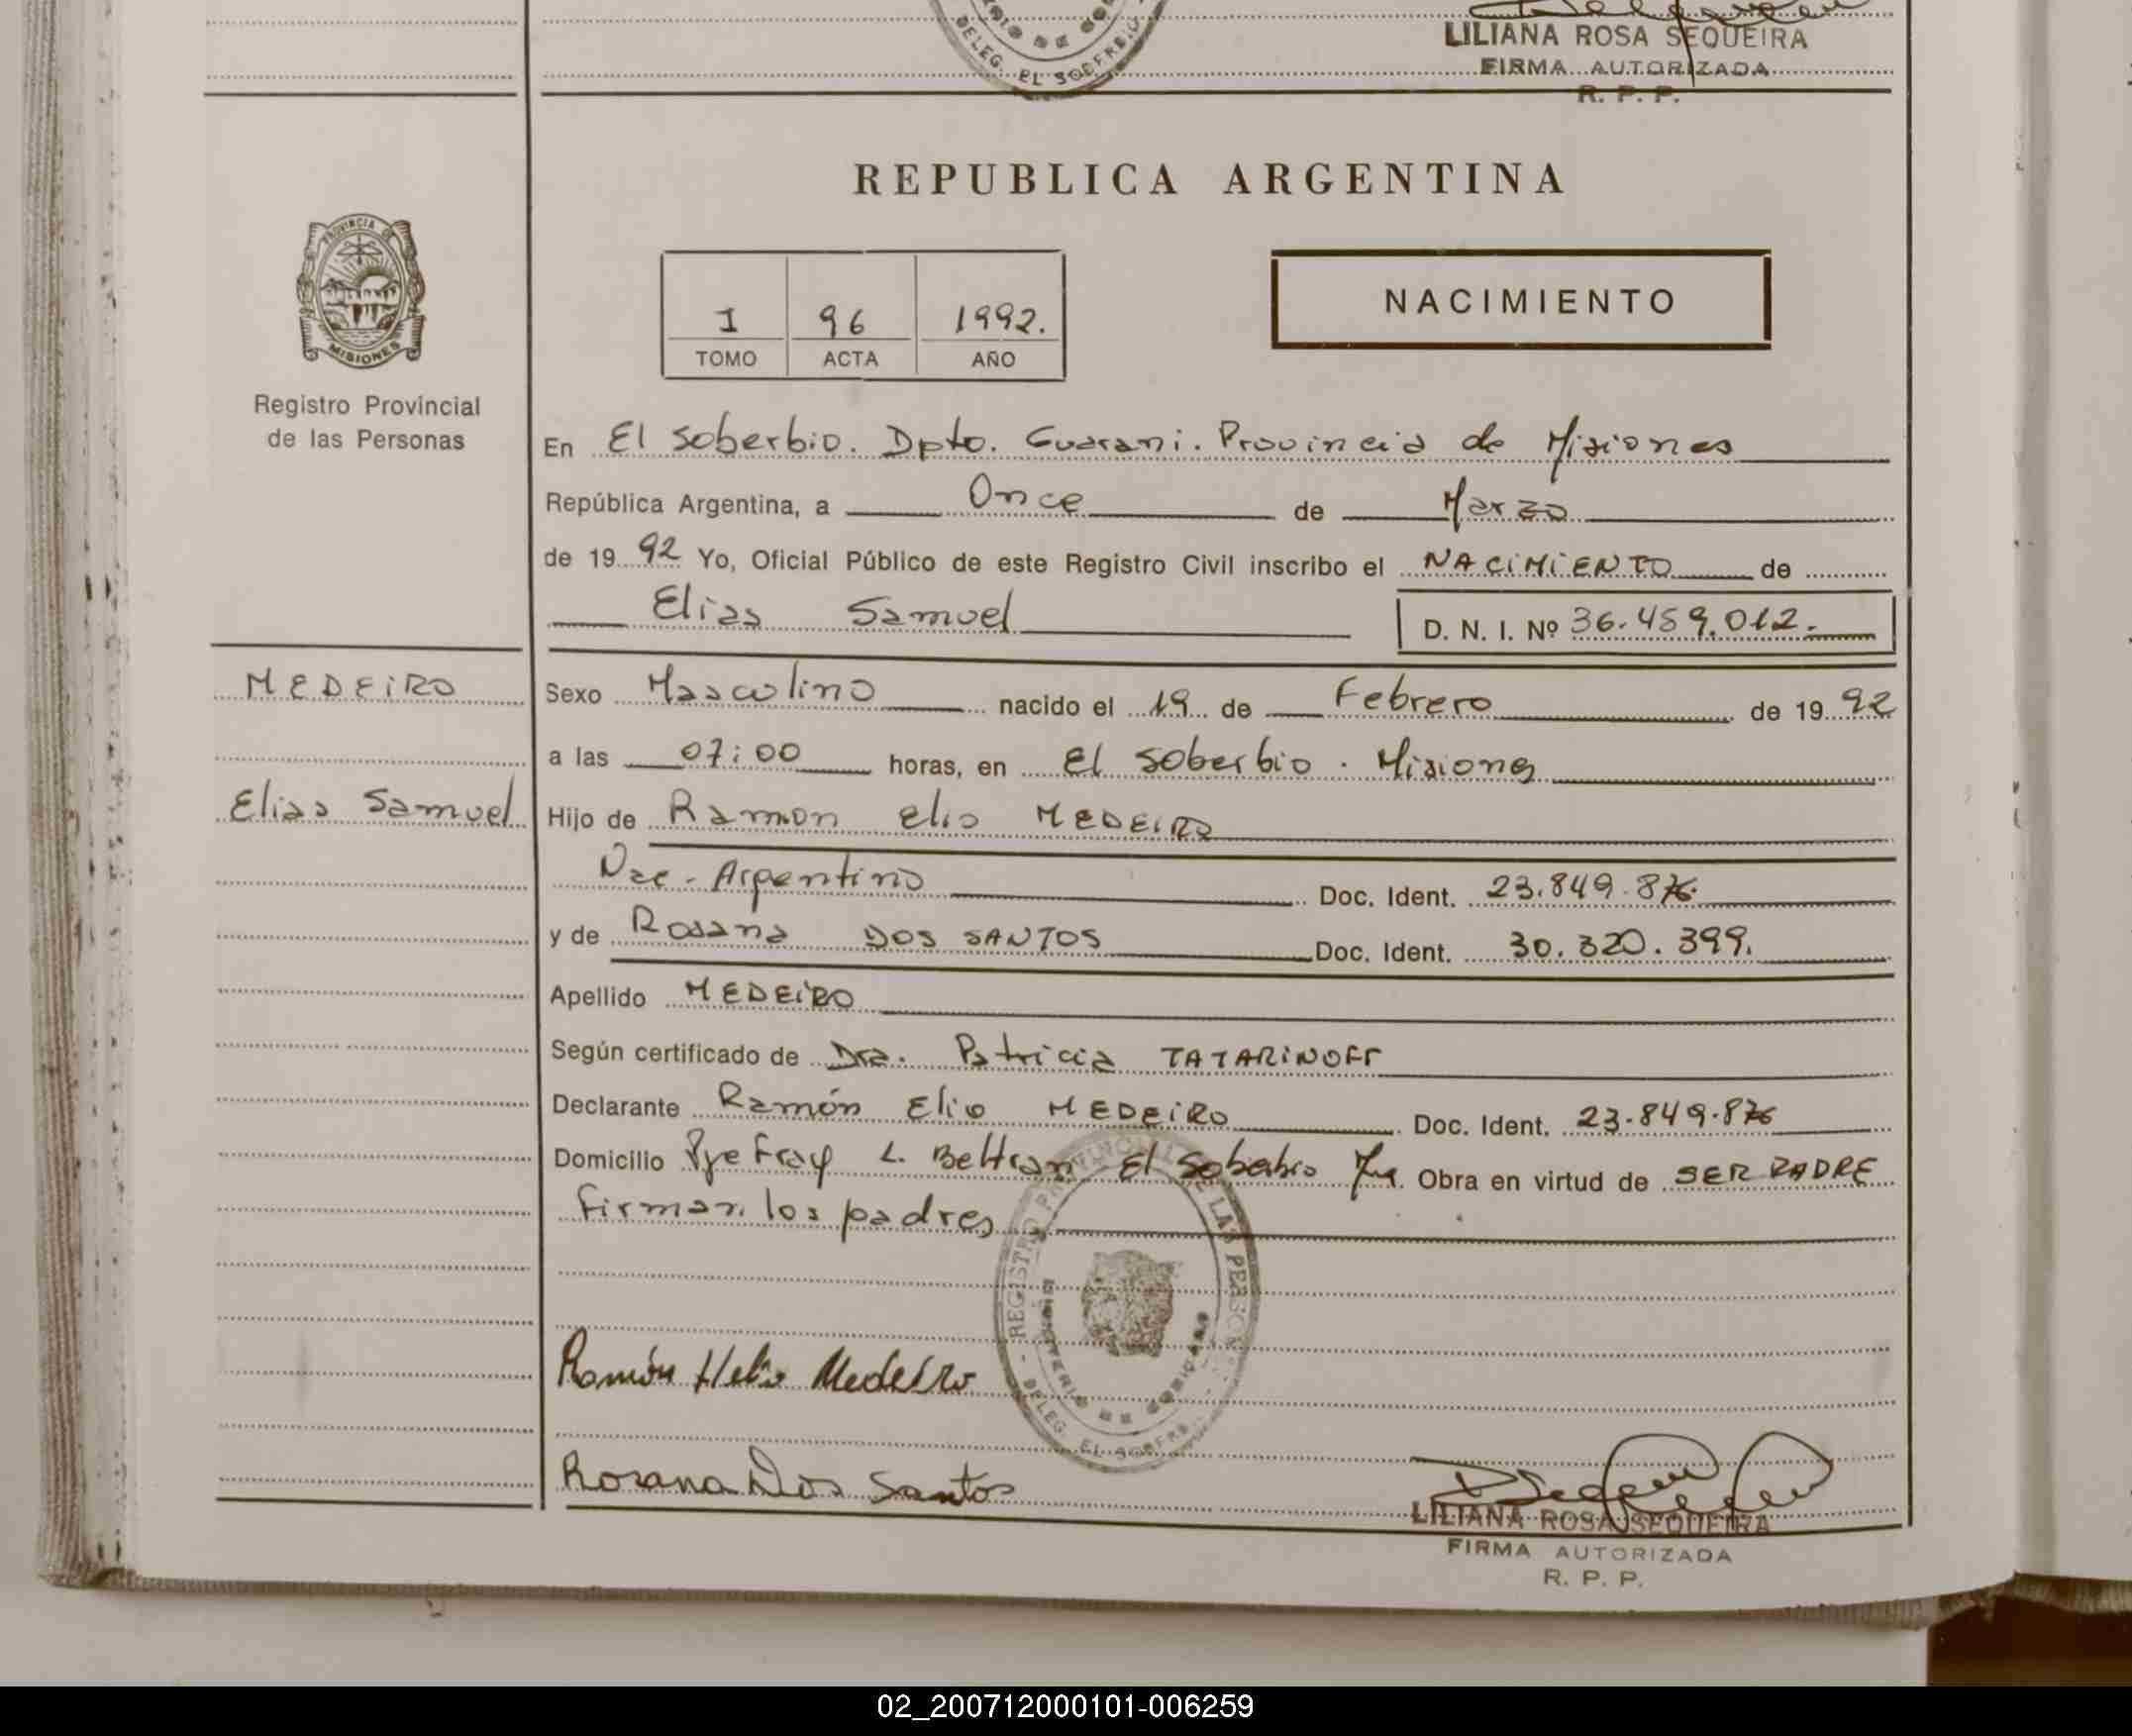 LILIANA ROSA SEQUEIRA
FIRMA AUTORIZADA
R. P. P.
DELEG. EL SOBERBIO
REPUBLICA ARGENTINA
PROVINCIA DE
MISIONES
Registro Provincial
de las Personas
I 96 1992.
TOMO ACTA AÑO
NACIMIENTO
En El Soberbio. Dpto. Guarani. Provincia de Misiones
República Argentina, a Once de Marzo
de 1992 Yo, Oficial Público de este Registro Civil inscribo el NACIMIENTO de
Elias Samuel D. N. I. Nº 36.459.012.
MEDEIRO
Elias Samuel
Sexo Masculino nacido el 19 de Febrero de 1992
a las 07:00 horas, en El Soberbio. Misiones
Hijo de Ramon Elio MEDEIRO
Nac. Argentino Doc. Ident. 23.849.876
y de Rosana DOS SANTOS Doc. Ident. 30.320.399.
Apellido MEDEIRO
Según certificado de Dra. Patricia TATARINOFF
Declarante Ramón Elio MEDEIRO Doc. Ident. 23.849.876
Domicilio Pje Fray L. Beltran El Soberbio Obra en virtud de SER PADRE
Firman los padres
REGISTRO PROVINCIAL DE LAS PERSONAS
MINISTERIO DE GOBIERNO
DELEG. EL SOBERBIO
Ramón Helio Medeiro
Rosana Dos Santos
LILIANA ROSA SEQUEIRA
FIRMA AUTORIZADA
R. P. P.
02_200712000101-006259